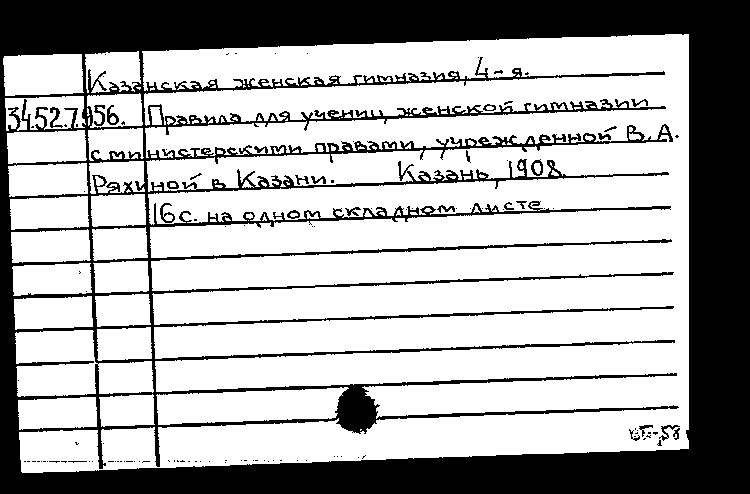 Казанская женская гимназия, 4-я.
34.52.7.956. Правила для учениц женской гимназии
с министерскими правами, учрежденной В.А.
Ряхиной в Казани. Казань, 1908.
16 с. на одном складном листе